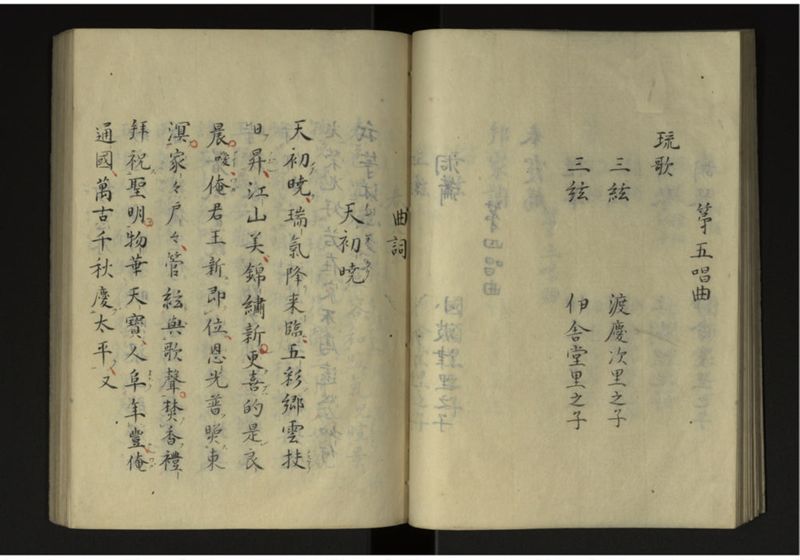 第五唱曲
琉歌
三絃　渡慶次里之子
三絃　伊舎堂里之子
曲詞
天初曉
天初曉、瑞氣降来臨、五彩郷雲扶
日昇、江山美、錦繡新、更喜的是良
晨、唯俺君王新即位、恩光普照東
溟、家々戸々、管絃與歌聲、焚香禮
拜祝聖明、物華天寶、人阜年豊、俺
通國、萬古千秋慶太平、又